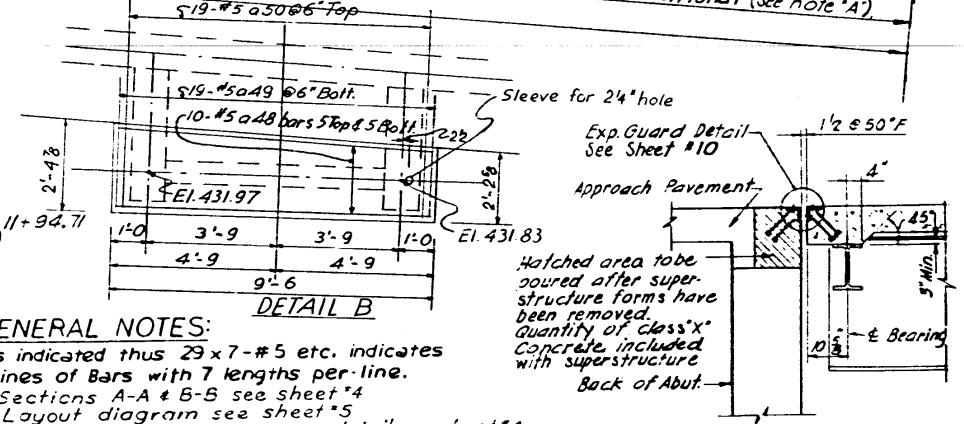 19-#5 a50@6" Top
(See Note "A")
19-#5 a49 @6" Bott.
10-#5 a48 bars 5 Top & 5 Bott.
Sleeve for 2¼" hole
2'-4⅞
2'-2⅝
El. 431.97
El. 431.83
11+94.71
1'-0
3'-9
3'-9
1'-0
4'-9
4'-9
9'-6
DETAIL B
Exp. Guard Detail
See Sheet #10
1½ @ 50°F
4"
Approach Pavement
45°
3" Min.
Hatched area to be
poured after super-
structure forms have
been removed.
Quantity of class "X"
Concrete included
with superstructure
10
℄ Bearing
Back of Abut.
ENERAL NOTES:
s indicated thus 29 x 7-#5 etc. indicates
ines of Bars with 7 lengths per line.
Sections A-A & B-B see sheet #4
Layout diagram see sheet #5